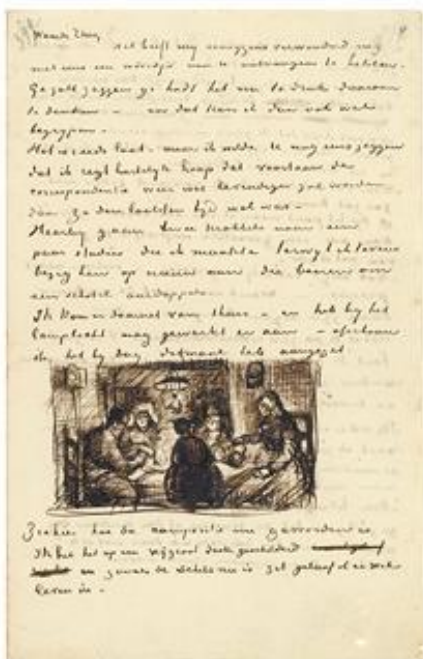 Waarde Theo,
Het heeft mij eenigzins verwonderd nog
niet eens een woordje van U ontvangen te hebben.
Ge zult zeggen ge hadt het te druk daaraan
te denken – en dat kan ik dan ook wel
begrijpen –
Het is reeds laat – maar ik wilde U nog eens zeggen
dat ik regt hartelijk hoop dat voortaan de
correspondentie weer wat levendiger zal worden
dan ze den laatsten tijd wel was –
Hierbij gaan twee krabbels naar een
paar studies die ik maakte terwijl ik tevens
bezig ben op nieuw aan die boeren om
een schotel aardappels
Ik kom er daarnet van thuis – en heb bij het
lamplicht nog gewerkt er aan – ofschoon
ik het bij dag ditmaal heb aangezet
Ziehier hoe de compositie nu geworden is
Ik heb het op een vrij groot doek geschilderd
en zooals de schets nu is zit geloof ik er wel
leven in –